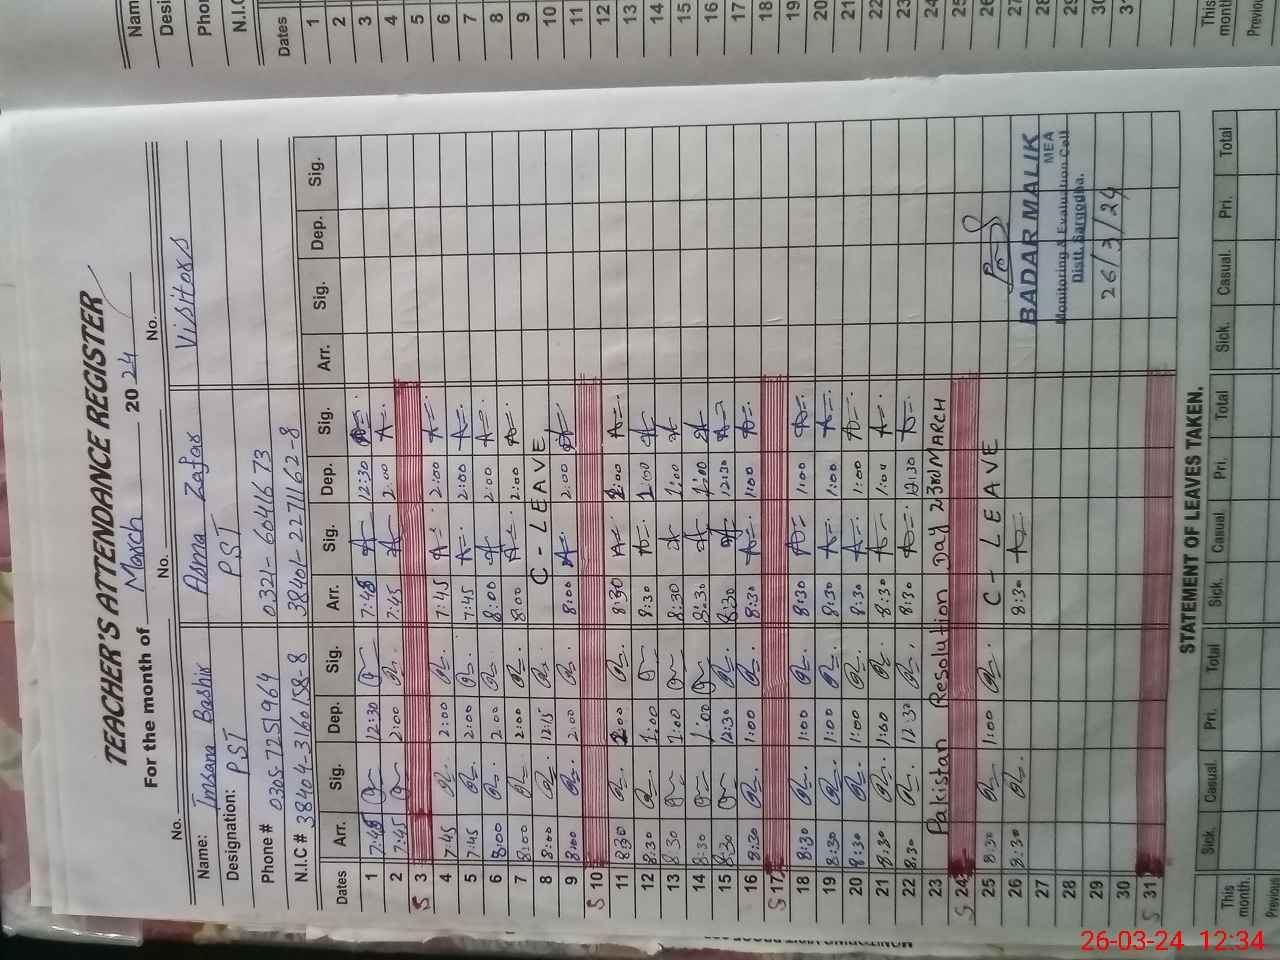 TEACHER'S ATTENDANCE REGISTER
For the month of March 2024
No. No. No.
Name: Imsana Bashir Asma Zafar Visitors
Designation: PST PST
Phone # 0305-7251964 0321-6041673
N.I.C # 38404-3160158-8 38401-2271162-8
Dates Arr. Sig. Dep. Sig. Arr. Sig. Dep. Sig. Arr. Sig. Dep. Sig.
1 7:45 12:30 7:45 12:30
2 7:45 2:00 7:45 2:00
S 3
4 7:45 2:00 7:45 2:00
5 7:45 2:00 7:45 2:00
6 8:00 2:00 8:00 2:00
7 8:00 2:00 8:00 2:00
8 8:00 12:15 C - LEAVE
9 8:00 2:00 8:00 2:00
S 10
11 8:30 8:30
12 8:30 1:00 8:30 1:00
13 8:30 1:00 8:30 1:00
14 8:30 1:00 8:30 1:00
15 8:30 12:30 8:30 12:30
16 8:30 1:00 8:30 1:00
S 17
18 8:30 1:00 8:30 1:00
19 8:30 1:00 8:30 1:00
20 8:30 1:00 8:30 1:00
21 8:30 1:00 8:30 1:00
22 8:30 12:30 8:30 12:30
23 Pakistan Resolution Day 23rd MARCH
S 24
25 8:30 1:00 C - LEAVE
26 8:30 8:30
27
28
29
30
S 31
BADAR MALIK
MEA
Monitoring & Evaluation Cell
Distt. Sargodha.
26/3/24
STATEMENT OF LEAVES TAKEN.
Sick. Casual. Pri. Total Sick. Casual. Pri. Total Sick. Casual. Pri. Total
This month.
Previous
Name
Desi
Phon
N.I.C
Dates
1
2
3
4
5
6
7
8
9
10
11
12
13
14
15
16
17
18
19
20
21
22
23
24
25
26
27
28
29
30
31
This month
Previou
26-03-24 12:34